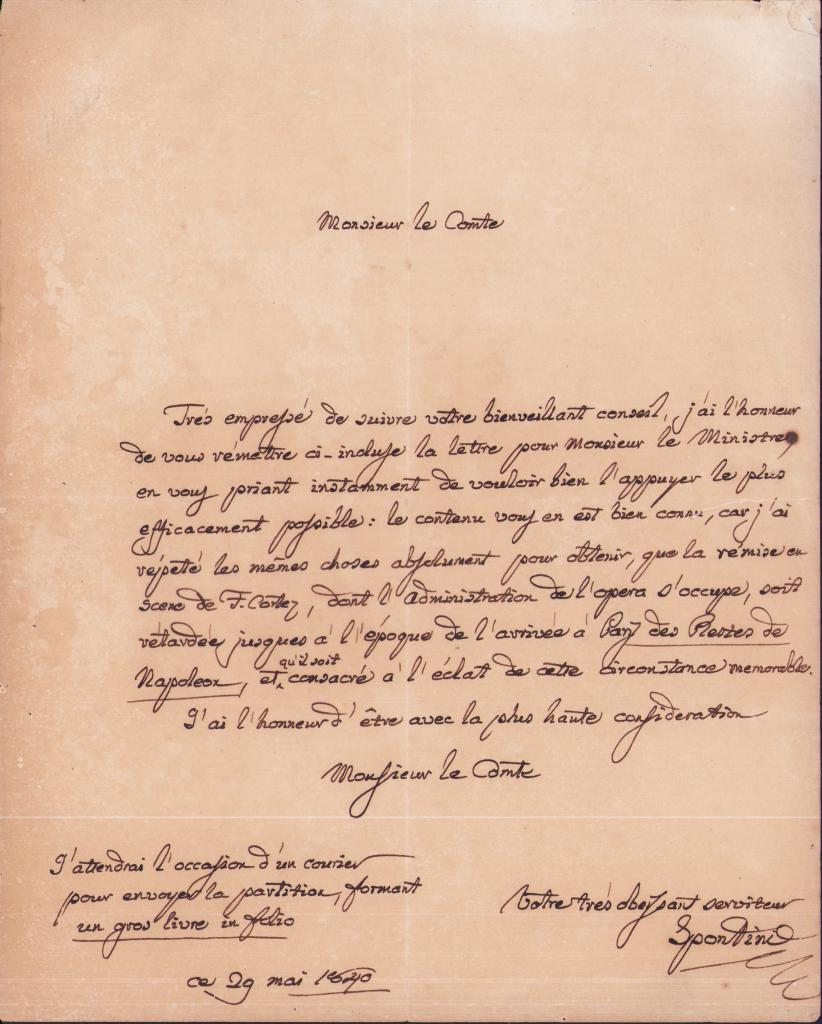 Monsieur le Comte
Trés empressé de suivre votre bienveillant conseil, j'ai l'honneur
de vous rémettre ci-incluse la lettre pour Monsieur le Ministre,
en vous priant instamment de vouloir bien l'appuyer le plus
efficacement possible: le contenu vous en est bien connu, car j'ai
répeté les mêmes choses absolument pour obtenir, que la rémise en
scene de F. Cortez, dont l'administration de l'opera s'occupe, soit
rétardée jusques à l'époque de l'arrivée à Paris des Restes de
Napoleon, et qu'il soit consacré à l'éclat de cette circonstance memorable.
J'ai l'honneur d'être avec la plus haute consideration
Monsieur le Comte
J'attendrai l'occasion d'un courier
pour envoyer la partition, formant
un gros livre in folio
ce 29 mai 1840
Votre trés obeissant serviteur
Spontini